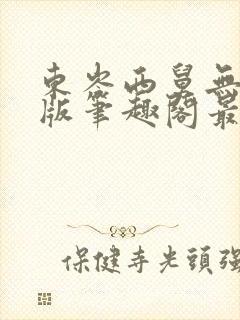 東岑西舅無
版筆趣閣最
保健寺光頭強